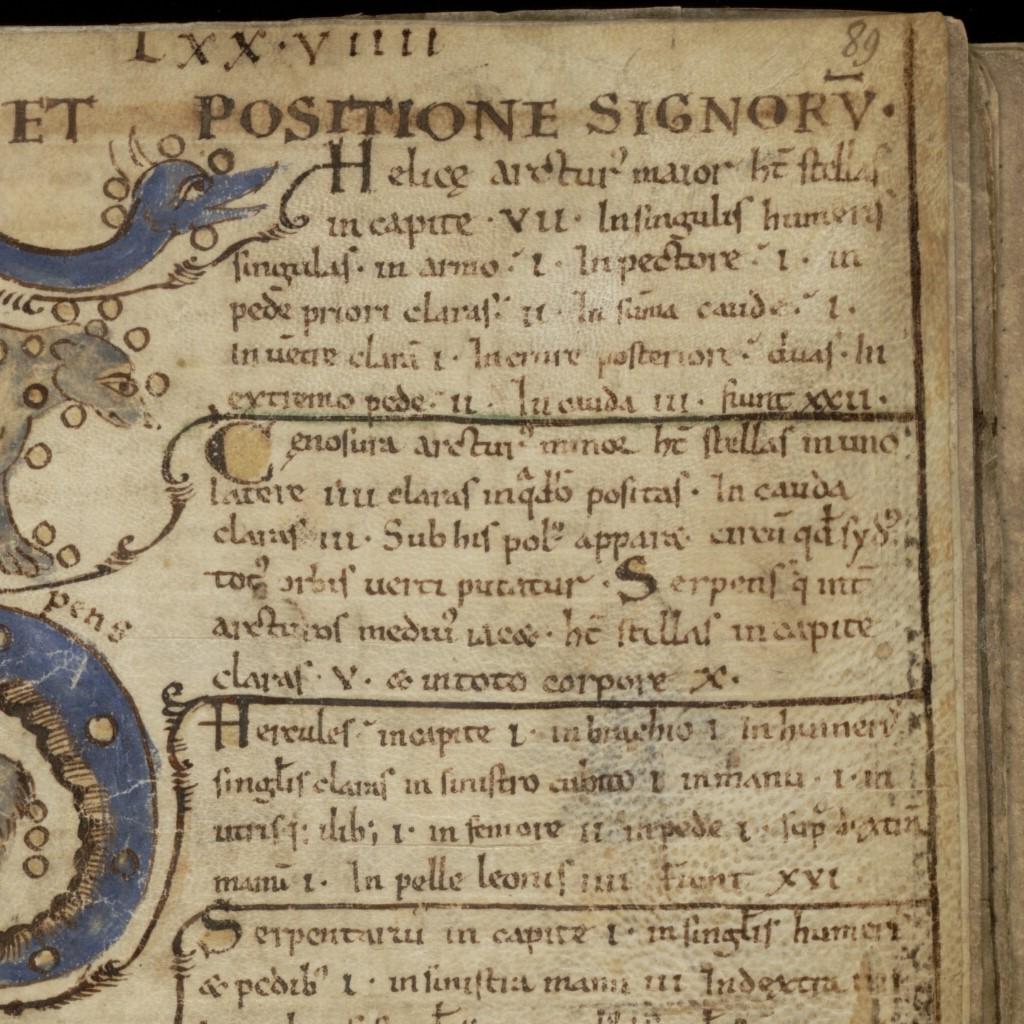 LXX·VIIII
89
ET POSITIONE SIGNORV̄·
Helicę arcturꝰ maior hc̄ stellas
in capite · VII · In singulis humeris
singulas · in armo · I · In pectore · I · in
pede priori claras · II · In sūma caude · I ·
In uentre clarā I · In crure posteriore · duas · In
extremo pede · II · In cauda III · fiunt XXII ·
Cenosura arcturꝰ minor hc̄ stellas in uno
latere IIII claras in qͣdro positas · In cauda
claras III · Sub his polꝰ apparet circū qd̄ sydꝰ
totꝰ orbis uerti putatur · Serpens q int̄
arcturos mediꝰ iacet · hc̄ stellas in capite
claras · V · & in toto corpore X ·
pens
Hercules · in capite I · in brachio I In humeris
singlis claras in sinistro cubito I in manu · I · in
utrisq; ilib; I · in femore II in pede I · sup dextrā
manū I · In pelle leonis IIII fiunt XVI
Serpentariū in capite I · in singlis humeris
& pedibꝰ I · in sinistra manu III In dextra IIII